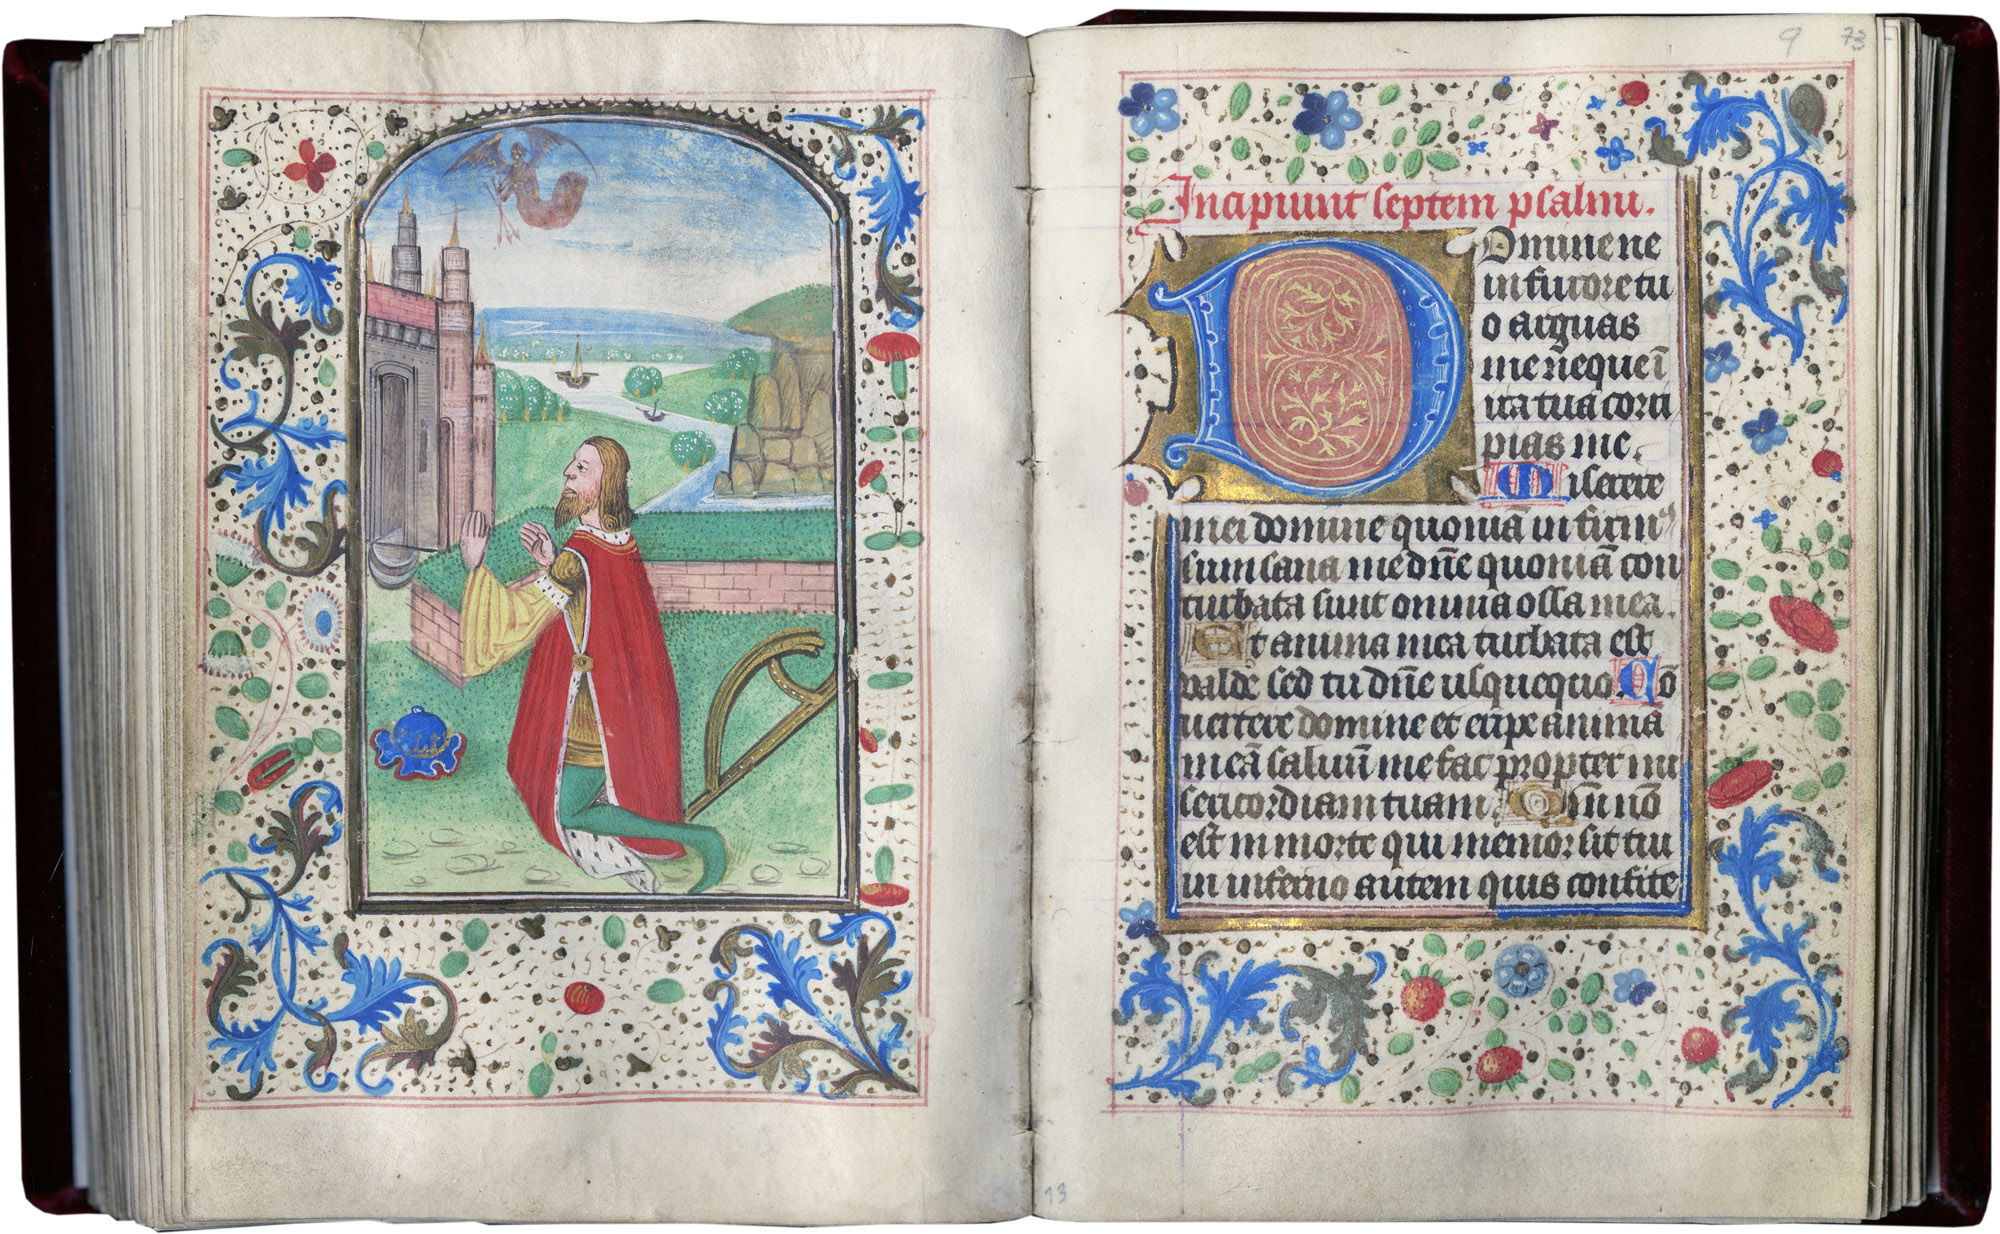 9 73
Incipiunt septem psalmi.
Domine ne
in furore tu
o arguas
me neque ī
ira tua corri
pias me.
Miserere
mei domine quoniā in firm⁹
sum sana me dn̄e quoniā con
turbata sunt omnia ossa mea.
Et anima mea turbata est
valde sed tu dn̄e usquequo. Cō
uertere domine et eripe anima
meā saluū me fac propter mi
sericordiam tuam. Qm̄ nō
est in morte qui memor sit tui
in inferno autem quis confite
13